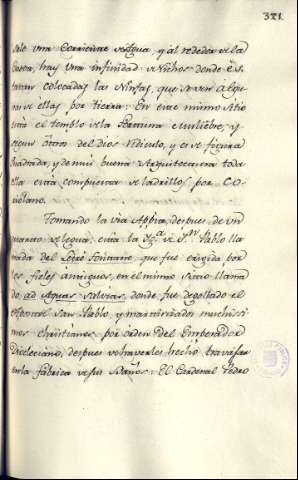 321.
sale una Corriente de Agua y al rededor de la
Cueva, hay una infinidad de Nichos donde es
tavan colocadas las Ninfas, que se ven algu
nas de ellas por tierra. En este mismo sitio
está el templo de la Fortuna muliebre, y
segun otros del dios Ridiculo, y es de figura
quadrada, y de mui buena Arquitectura toda
ella está compuesta de ladrillos por Co
riolano.
Tomando la via Appia, despues de un
quarto de legua, está la Yg.ª de S.n Pablo lla
mada del tre Fontane que fue erigida por
los fieles antiguos, en el mismo sitio llama
do ad Aquas Salvias, donde fue degollado el
Apostol San Pablo, y martirizados muchisi
mos christianos por orden del Emperador
Diocleciano, despues de haverles hecho travajar
en la fabrica de sus Baños. El Cardenal Pedro